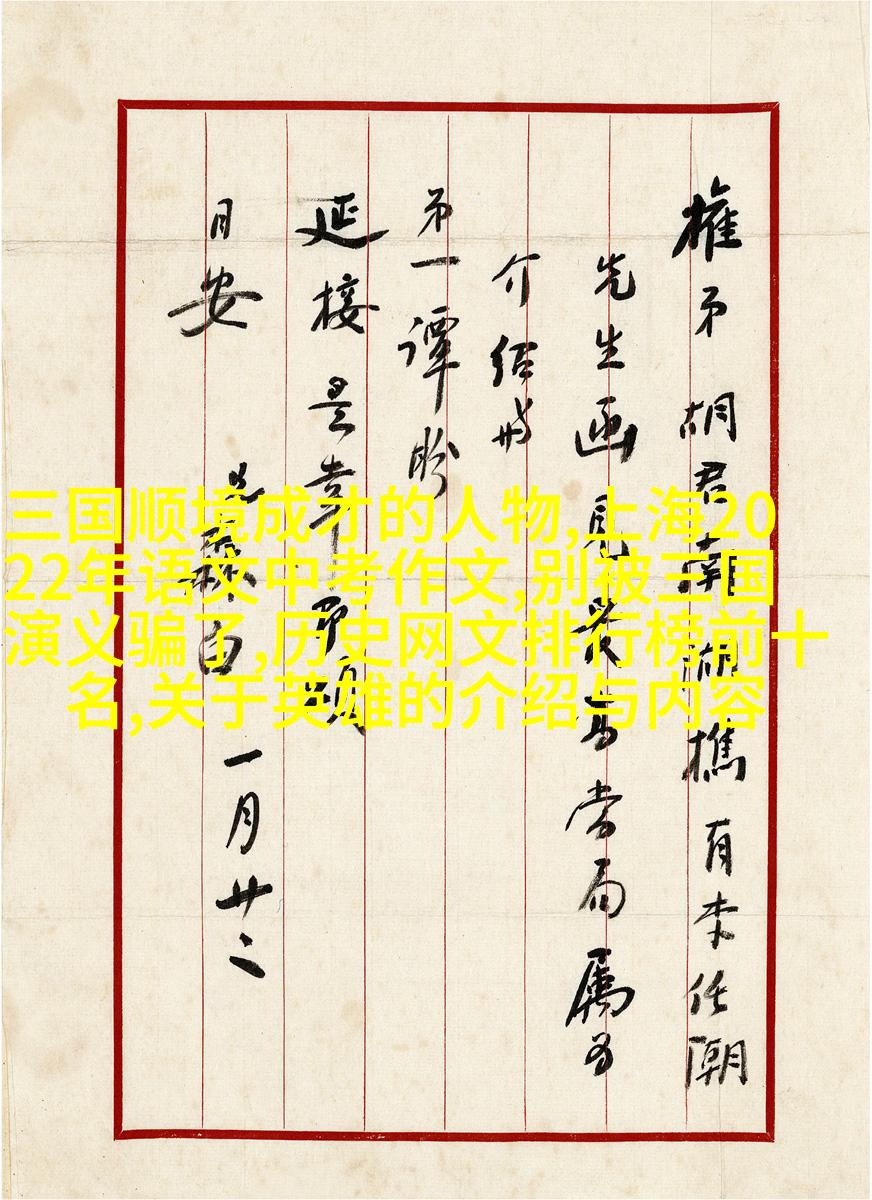 權弟胡君南湖樵有李任潮
先生函見最高當局属为
介绍
弟一谭盼
延接是幸即頌
日安
白 一月廿二
三国顺境成才的人物,上海20
22年语文中考作文,别被三国
演义骗了,历史网文排行榜前十
名,关于英雄的介绍与内容